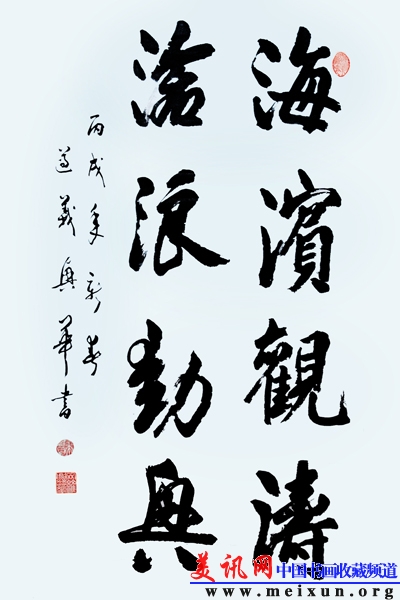 海濱觀濤
滄浪動興
丙戌年新春
遵義興華書
美讯网
中国书画收藏频道
www.meixun.org